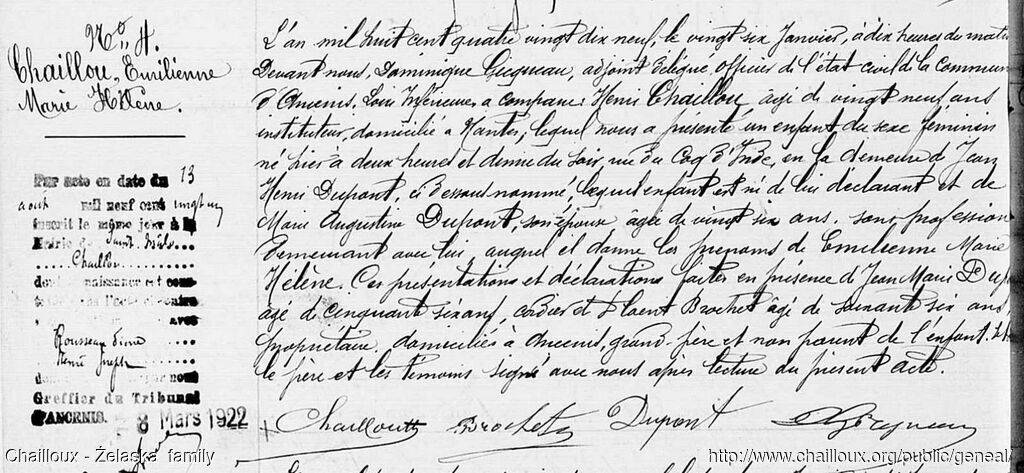 No. 4.
Chaillou, Emilienne
Marie Hélène.
Par acte en date du 13
aout mil neuf cent vingt un
inscrit le même jour à la
Mairie de
Chaillou
naissance est
avec
Rousseau
Henri Joseph
Greffier du Tribunal
d'ANCENIS.
8 Mars 1922
L'an mil huit cent quatre vingt dix neuf, le vingt six Janvier, à dix heures du matin
Devant nous, Dominique Gicqueau, adjoint délégué, officier de l'état civil de la commune
d'Ancenis, Loire Inférieure, a comparu: Henri Chaillou, agé de vingt neuf ans
instituteur, domicilié à Nantes, lequel nous a présenté un enfant du sexe féminin
né hier à deux heures et demie du soir, rue du Coq d'Inde, en la demeure de Jean
Henri Dupont, ci-dessous nommé, lequel enfant est né de lui déclarant et de
Marie Augustine Dupont, son épouse agée de vingt six ans, sans profession
demeurant avec lui, auquel il donne les prénoms de Emilienne Marie
Hélène. Ces présentations et déclarations faites en présence de Jean Marie
agé de cinquante six ans, cordier et Florent Brochet agé de soixante six ans,
propriétaire, domiciliés à Ancenis, grand-père et non parent de l'enfant. Et
le père et les témoins signé avec nous après lecture du présent acte.
Chailloux Brochet Dupont Gicqueau
Chailloux - Żelaska family
http://www.chailloux.org/public/geneal/